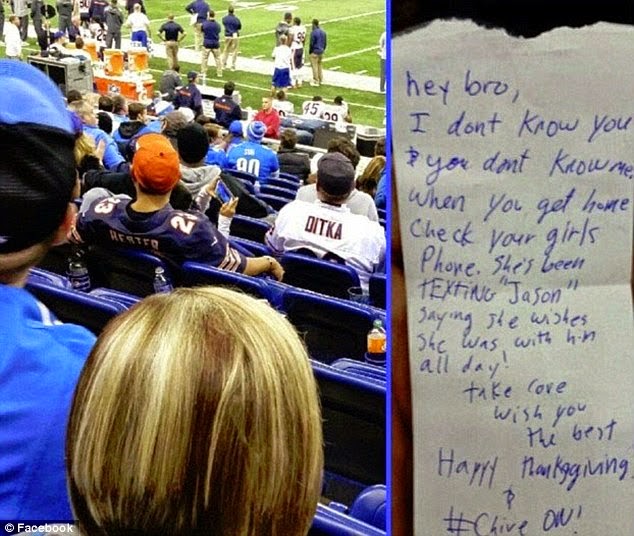 45
90
23
HESTER
DITKA
© Facebook
hey bro,
I dont know you
& you dont know me,
when you get home
check your girls
Phone. She's been
TEXTING "Jason"
saying she wishes
she was with him
all day!
take care
wish you
the best
Happy thanksgiving
&
#Chive ON!